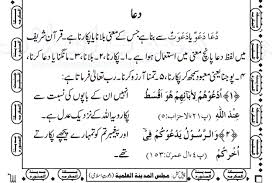 دعا
دُعَا دَعْوٌ یا دَعْوَتٌ سے بنا ہے جس کے معنی بلانا یا پکارنا ہے۔ قرآن شریف
میں لفظ دعا پانچ معنی میں استعمال ہوا ہے۔ ۱۔ پکارنا، ۲۔ بلانا، ۳۔ مانگنا یا دعا کرنا،
۴۔ پوجنا یعنی معبود سمجھ کر پکارنا، ۵۔ تمنا آرزو کرنا۔ رب تعالیٰ فرماتا ہے:
﴿۱﴾ اُدْعُوْهُمْ لِاٰبَآىٕهِمْ هُوَ اَقْسَطُ عِنْدَ اللّٰهِ
(پ۲۱، الاحزاب:۵)
انہیں ان کے باپوں کی نسبت سے پکارو یہ اللہ کے نزدیک عدل ہے۔
﴿۲﴾ وَّ الرَّسُوْلُ یَدْعُوْكُمْ فِیْۤ اُخْرٰىكُمْ
(پ۴، ال عمرٰن:۱۵۳)
اور پیغمبر تم کو تمہارے پیچھے پکارتے تھے۔
مجلس المدینۃ العلمیۃ (دعوت اسلامی)